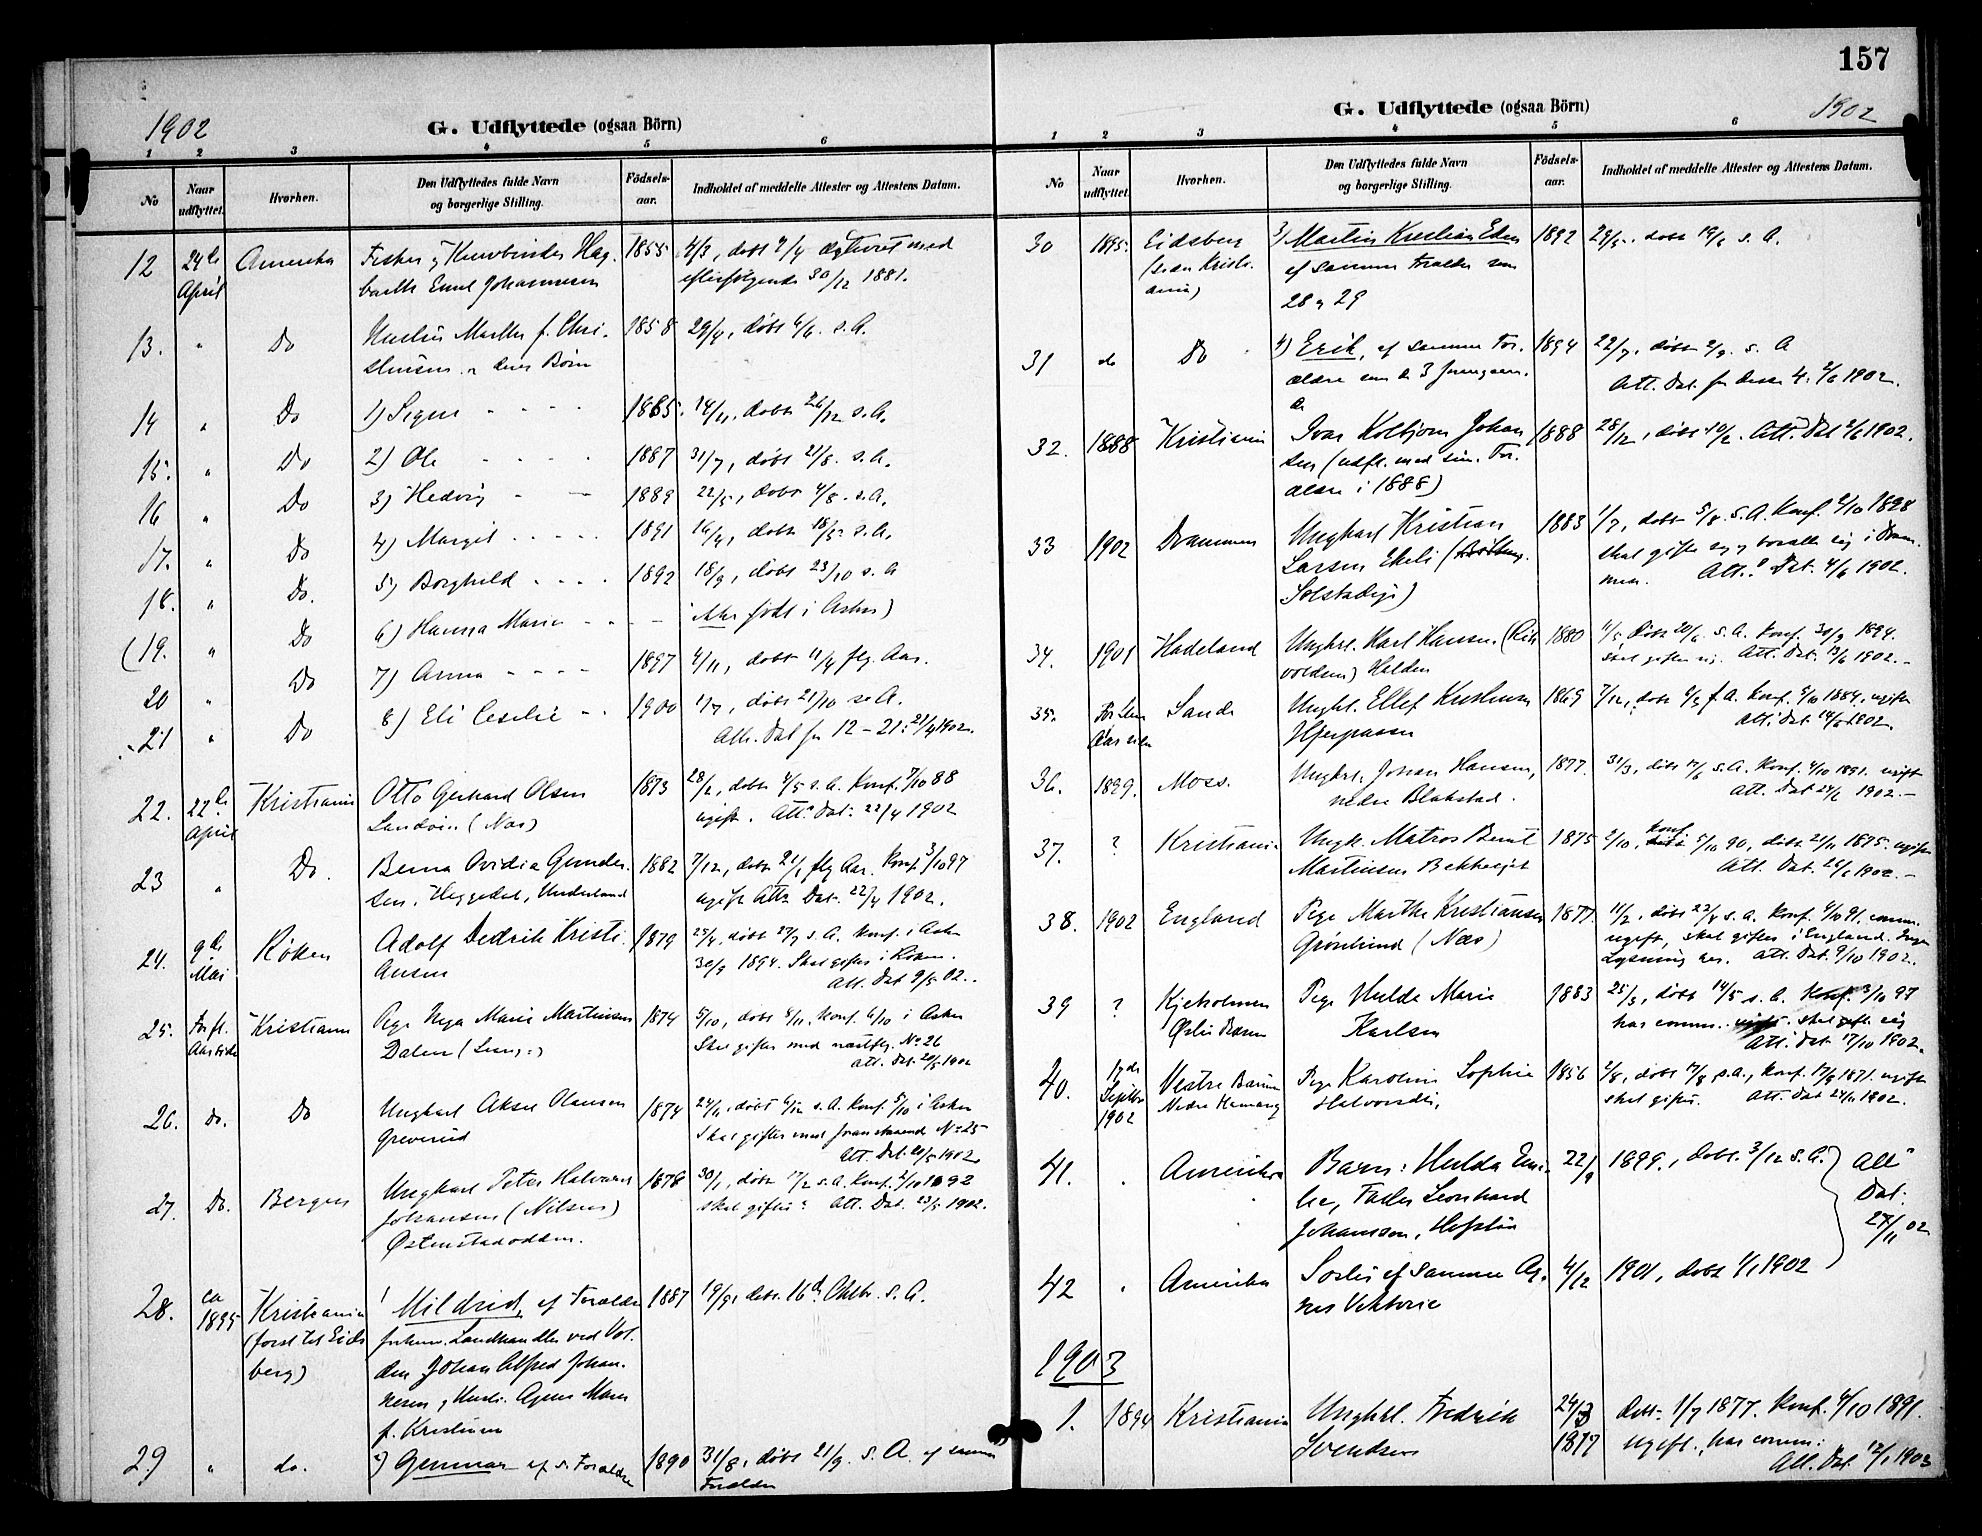 1902
G. Udflyttede (ogsaa Börn)
1 2 3 4 5 6
No
Naar udflyttet.
Hvorhen.
Den Udflyttedes fulde Navn og borgerlige Stilling.
Fødsels-aar.
Indholdet af meddelte Attester og Attestens Datum.
12 24de Amerika Fisker Hag- 1855 4/3, døbt 9/4
April Emil Johannesen efterfølgende 30/12 1881.
13. " Do Hustru Marthe f. Chri- 1858 29/4, døbt 6/6 s. A.
deres Børn
14 " Do 1) Signe 1885. 14/11, døbt 26/12 s. A.
15. " Do 2) Ole 1887 31/7, døbt 21/8. s. A.
16 " Do 3) Hedvig 1889 22/5, døbt 4/8. s. A.
17. " Do 4) Margit 1891 16/4, døbt s. A.
18. " Do. 5) Borghild 1892 18/9, døbt 23/10 s. A
(19. " Do 6) Hanna Marie født i Asker)
20 " Do 7) Anna 1897 4/11, døbt 11/4 flg. Aar.
21 " Do 8) Eli Cecilie 1900 døbt 21/10 s. A.
Att. Dat. for 12 – 21: 21/4 1902.
22. 22de Kristiania Otto Gerhard Olsen 1873 28/2, døbt 4/5 s. A. Konf. 7/10 88
April Landøen (Næs) ugift. Att. Dat. 22/4 1902
23 " Do. Berna Ovidia Gunder- 1882 7/12, døbt 21/1 flg Aar. Konf. 3/10 97
sen. Heggedal, ugift Att. Dat. 22/4 1902.
24. 9de Røken Adolf Dedrik Kristi- 1879 døbt s. A. Konf. i Asker
Mai ansen 30/9 1894. Skal giftes i Røken.
Att. Dat 9/5 02.
25. Kristiania Pige Marie Martinsen 1874 5/10, døbt 8/11. Konf. 6/10 i Asker
Dalen Skal giftes med næstflg. No 26
Att. Dat. 20/5 1902
26. do. Do Ungkarl Aksel Olausen 1874 24/11, døbt 6/12 s. A. Konf. i Asker
Greverud Skal giftes med foranstaaend No 25
Att. Dat. 20/5 1902.
27. Do. Bergen Ungkarl Peter Halvorsen 1878 30/1, døbt 17/2 s. A. Konf. 2/10 1892
Johansen (Nilsen) skal giftes Att. Dat. 23/5 1902.
Østenstadodden.
28. ca Kristiania 1 Mildrid, af Forældre 1887 19/9, døbt 16de Oktbr. s. A.
1895 (først til Eids- Landhandler ved Vol-
berg) den Johan Alfred Johan-
nesen, Hustr. Agnes Marie
f. Kristians
29 " do. 2) Gunnar af s. Forældre 1890 31/8, døbt 21/9. s. A. af samme
Forældre
157
G. Udflyttede (ogsaa Börn)
1902
1 2 3 4 5 6
No
Naar udflyttet.
Hvorhen.
Den Udflyttedes fulde Navn og borgerlige Stilling.
Fødsels-aar.
Indholdet af meddelte Attester og Attestens Datum.
30 1895. Eidsberg 3) Martin Kristian 1892 døbt 19/6 s. A.
(siden Kristi- af samme Forældre som
ania) 28 og 29
31 do Do 4) Erik, af samme For- 1894 22/7, døbt 2/9. s. A
ældre som de 3 foregaaen- Att. Dat. for disse 4. 2/6 1902.
de
32. 1888 Kristiania Ivar Kolbjørn Johan- 1888 døbt Att. Dat 2/6 1902.
sen (udfl. med sine For-
ældre i 1888)
33 1902 Drammen Ungkarl Kristian 1883 1/7, døbt 5/8. s. A. Konf. 2/10 1898
Larsen Ekeli skal gifte sig og bosætte sig i Dram-
Solstadeje) men. Att. Dat. 4/6 1902.
34. 1901 Hadeland Ungkrl. Karl Hansen. 1880 døbt 20/6 s. A. Konf. 30/9 1894.
Holden skal gifte sig. Att. Dat. 13/6 1902.–
35. Sande Ungkl. Ellef Kristiansen 1869 7/12, døbt f. A. Konf. 5/10 1884. ugift
Aar siden Att. Dat. 1902.
36. 1899. Moss. Ungkrl. Johan Hansen, 1877. 31/3, døbt 17/6 s. A. Konf. 4/10 1891. ugift
nedre Blakstad. Att. Dat 24/6 1902.–
37. ? Kristiania Ungk. Matros Bernt 1875 2/10, Konf. 5/10 90, døbt 21/11 1875. ugift
Martinsen Bekkevejet Att. Dat. 26/6 1902.–
38. 1902 England Pige Marthe Kristiansen 1877. 11/2, døbt 22/4 s. A. Konf. 4/10 91. comm.
Grønlund (Næs) ugift, skal giftes i England. Ingen
Lysning her. Att. Dat. 9/10 1902.
39 ? Kjeholmen Pige Hulda Marie 1883 25/3, døbt 14/5 s. A. Konf. 3/10 97
Østre Bærum Karlsen har comm. skal gifte sig
Att. Dat. 17/10 1902.
40. Septbr Vestre Bærum Pige Karoline Sophie 1856 2/8, døbt 17/8 s. A., Konf. 17/9 1871. ugift
1902 Nedre Hamang Halvorsdtr, skal giftes. Att. Dat 24/11 1902.
41. . Amerika Barn: Hulda Emi- 22/9 1899., døbt. 3/12 s. A. Att
lie, Fader Leonhard Dat.
Johansen, 27/11 02
42 . Amerika Søster af samme Ag- 4/12 1901, døbt 1/1 1902
nes Viktoria
1903
1. 1894 Kristiania Ungkrl. Fredrik 24/3 Døbt 1/7 1877. Konf. 4/10 1891.
Svendsen 1877 Ugift, har comm:
Att. Dat. 12/1 1903